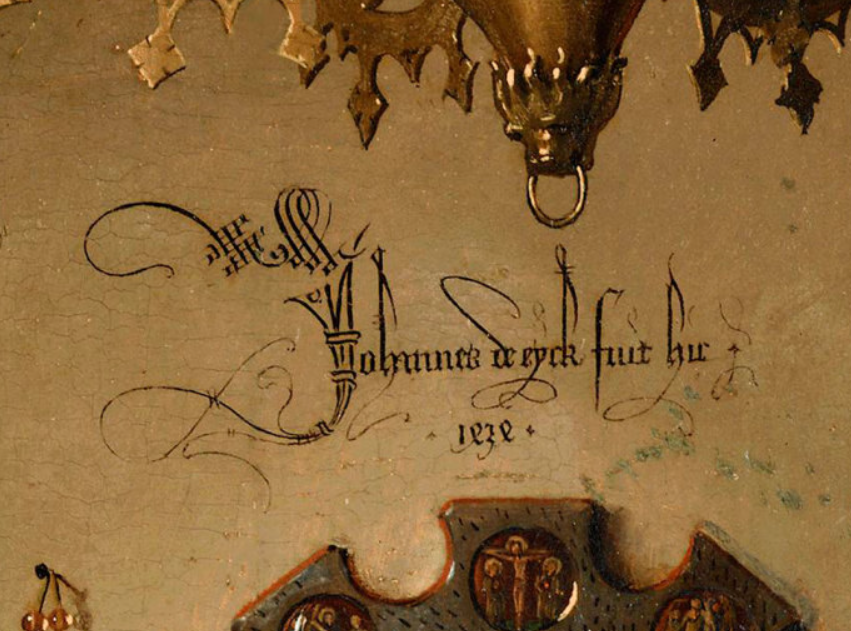 Johannes de eyck fuit hic
·1434·